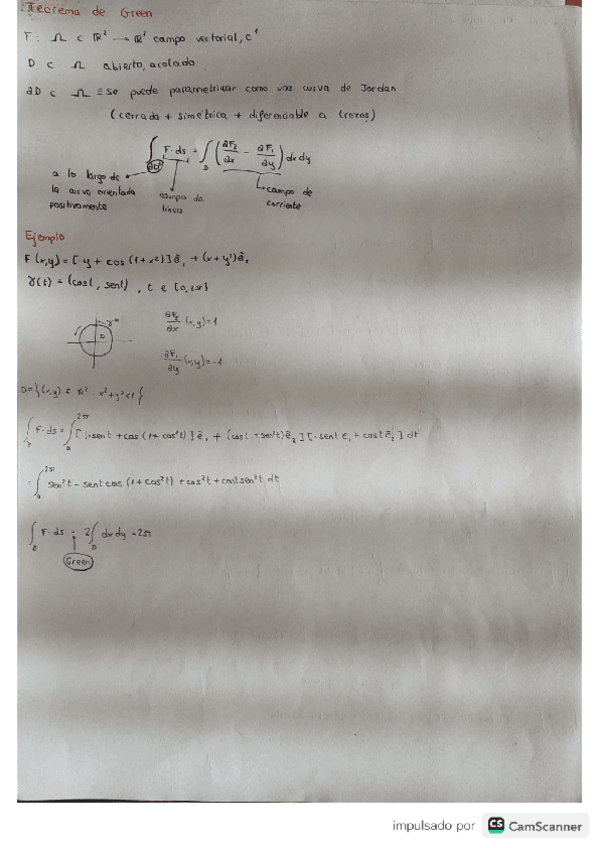 Teorema de Green
F: Ω ⊂ ℝ² → ℝ² campo vectorial, C¹
D ⊂ Ω abierto, acotado
∂D ⊂ Ω ≡ se puede parametrizar como una curva de Jordan
(cerrada + simetrica + diferenciable a trozos)
∫_∂D F·ds = ∫_D (∂F₂/∂x - ∂F₁/∂y) dxdy
a lo largo de
la curva orientada
positivamente
campo de
linea
campo de
corriente
Ejemplo
F(x,y) = [-y + cos(1+x²)]ê₁ + (x+y²)ê₂
γ(t) = (cost, sent), t ∈ [0,2π]
γ*
D
∂F₂/∂x (x,y)=1
∂F₁/∂y (x,y)=-1
D={(x,y) ∈ ℝ² : x²+y²<1}
∫_γ F·ds = ∫₀^2π [(-sent + cos(1+cos²t)]ê₁ + (cost + sen²t)ê₂][-sent ê₁ + cost ê₂] dt
= ∫₀^2π sen²t - sent cos(1+cos²t) + cos²t + cost sen²t dt
∫_γ F·ds = 2∫_D dxdy = 2π
Green
impulsado por CS CamScanner